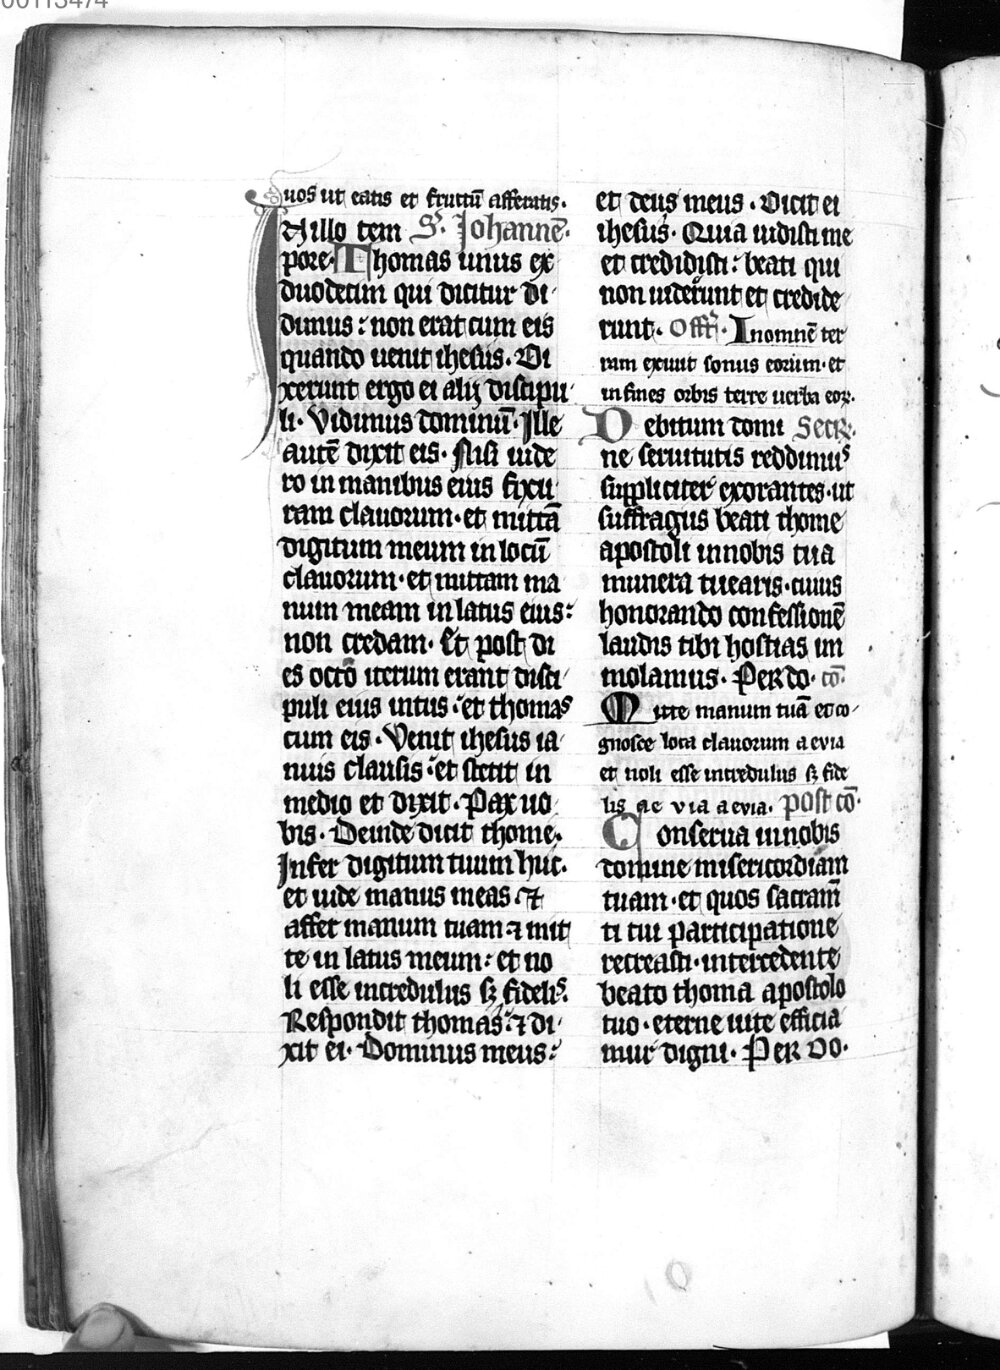 00113474
uos ut eatis et fructū afferatis.
In illo tem S. Johannē.
pore. Thomas unus ex
duodecim qui dicitur di
dimus: non erat cum eis
quando uenit ihesus. Di
xerunt ergo ei alij discipu
li. Vidimus dominū. Ille
autē dixit eis. Nisi uide
ro in manibus eius fixu
ram clauorum. et mittā
digitum meum in locū
clauorum. et mittam ma
num meam in latus eius:
non credam. Et post di
es octo iterum erant disci
puli eius intus: et thomas
cum eis. Venit ihesus ia
nuis clausis: et stetit in
medio et dixit. Pax uo
bis. Deinde dicit thome.
Infer digitum tuum huc.
et uide manus meas: ⁊
affer manum tuam ⁊ mit
te in latus meum: et no
li esse incredulus sꝫ fidelis.
Respondit thomas: ⁊ di
xit ei. Dominus meus:
et deus meus. Dicit ei
ihesus. Quia uidisti me
et credidisti: beati qui
non uiderunt et credide
runt. Off. In omnē ter
ram exiuit sonus eorum. et
in fines orbis terre uerba eoꝝ.
Debitum domi Secr.
ne seruitutis reddimus
suppliciter exorantes. ut
suffragiis beati thome
apostoli in nobis tua
munera tuearis. cuius
honorando confessionē
laudis tibi hostias im
molamus. Per do. cō.
Mitte manum tuā et co
gnosce loca clauorum aeuia
et noli esse incredulus sꝫ fide
lis ae via aevia. post cō.
Conserua in nobis
domine misericordiam
tuam. et quos sacram̄
ti tui participatione
recreasti. intercedente
beato thoma apostolo
tuo. eterne uite efficia
mur digni. Per do.